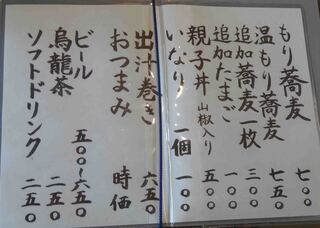 もり蕎麦 七〇〇
温もり蕎麦 七五〇
追加蕎麦一枚 三〇〇
追加たまご 一〇〇
親子丼 山椒入り 五〇〇
いなり 一個 一〇〇
出汁巻き 六五〇
おつまみ 時価
ビール 五〇〇〜六五〇
烏龍茶 二五〇
ソフトドリンク 二五〇